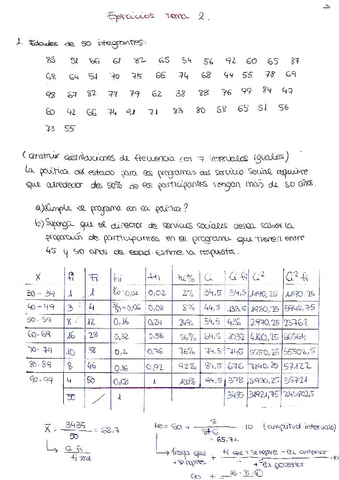 Ejercicios Tema 2.
1. Edades de 50 integrantes:
83 51 66 61 82 65 54 56 92 60 65 87
68 64 51 70 75 66 74 68 44 55 78 69
98 67 82 77 79 62 38 88 76 99 84 47
60 42 66 74 91 71 83 80 68 65 51 56
73 55
(Construir distribuciones de frecuencia con 7 intervalos iguales)
La política del estado para los programas del servicio social requiere
que alrededor de 50% de los participantes tengan más de 50 años.
a) ¿Cumple el programa con la política?
b) Suponga que el director de servicios sociales desea saber la
proporción de participantes en el programa que tienen entre
45 y 50 años de edad. Estime la respuesta.
X fi Fi hi Hi hi% Ci Ci fi Ci² Ci² fi
30 - 39 1 1 0,02 2% 34,5 34,5 1190,25 1190,25
40 - 49 3 4 0,06 0,08 44,5 133,5 1980,25
50 - 59 8 12 0,16 0,24 24% 54,5 436 2970,25 23762
60 - 69 16 28 0,32 0,56 56% 64,5 1032 4160,25 66564
70 - 79 10 38 0,2 0,76 76% 74,5 745 5550,25 55502,5
80 - 89 8 46 0,16 0,92 92% 84,5 676 7140,25 57122
90 - 99 4 50 0,08 1 100% 94,5 378 8930,25 35721
50 1 3435
X = 3435 / 50 = 68.7
Me = 60 + · 10 (amplitud intervalo)
= 65.71
Ci fi
fi total